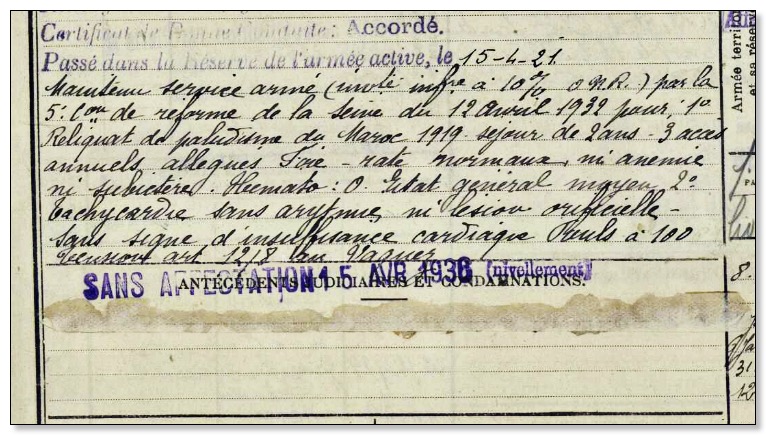 Certificat de Bonne Conduite: Accordé.
Passé dans la Réserve de l'armée active, le 15-4-21.
Maintenu service armé (invté infre à 10% O.N.R.) par la
5e Con de reforme de la Seine du 12 Avril 1932 pour; 1o
Reliquat de paludisme du Maroc 1919 sejour de 2 ans - 3 accès
annuels allegues Foie - rate normaux, ni anemie
ni subictère. Hemato: O. Etat général moyen 2o
Tachycardie sans arytmie, ni lesion orificielle -
Sans signe d'insuffisance cardiaque Pouls à 100
tension art 12/8 au Vaquez
SANS AFFECTATION 15 AVR 1936 (nivellement)
ANTÉCÉDENTS JUDICIAIRES ET CONDAMNATIONS.
Armée territ
et sa réser
8.
31
12